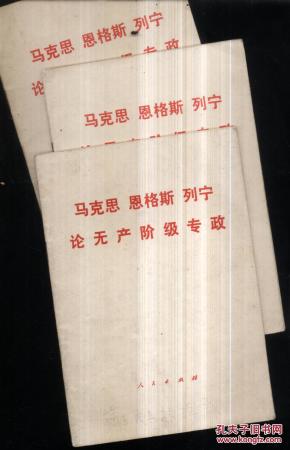 马克思 恩格斯 列宁
论无产阶级专政
马克思 恩格斯 列宁
论无产阶级专政
马克思 恩格斯 列宁
论无产阶级专政
人民出版社
孔夫子旧书网